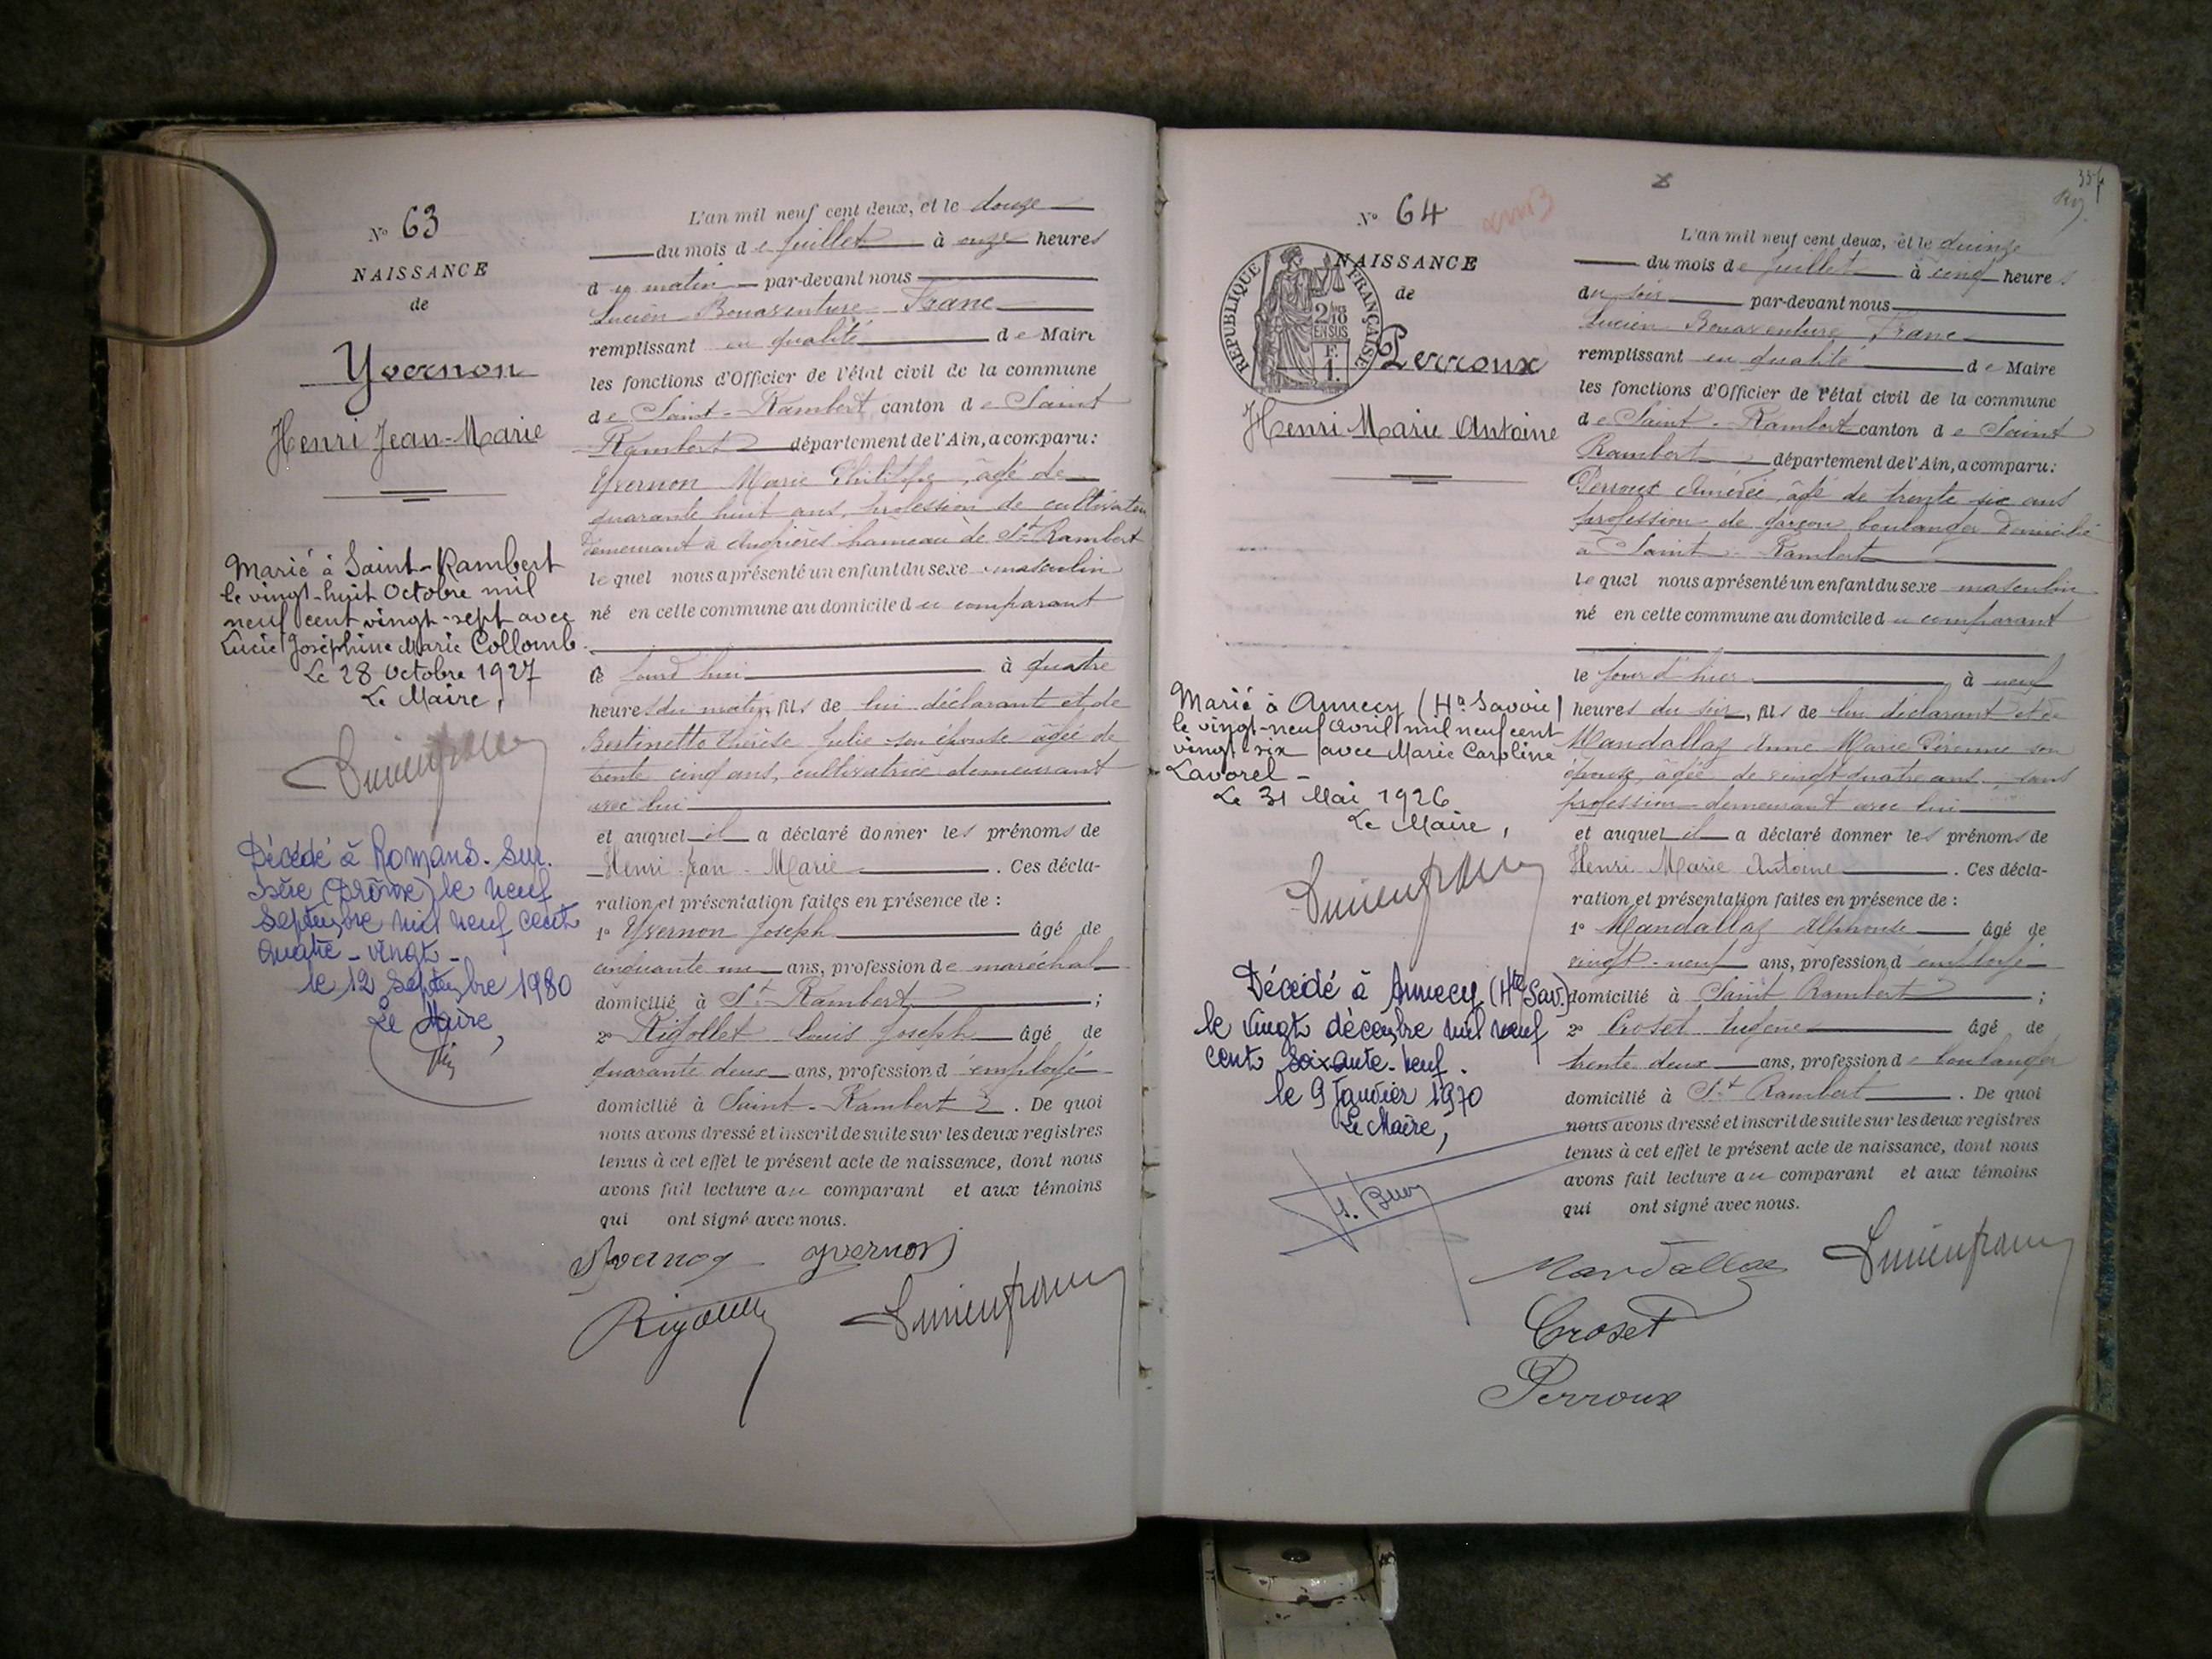 N° 63
NAISSANCE
de
Yvernon
Henri Jean-Marie
Marié à Saint-Rambert
le vingt-huit Octobre mil
neuf cent vingt-sept avec
Lucie Joséphine Marie Collomb
Le 28 Octobre 1927
Le Maire,
Lucien franc
Décédé à Romans-sur-
Isère (Drôme) le neuf
septembre mil neuf cent
quatre-vingt-
le 12 septembre 1980
Le Maire,
L'an mil neuf cent deux, et le douze
du mois de juillet à onze heures
du matin par-devant nous
Lucien Bonaventure Franc
remplissant en qualité de Maire
les fonctions d'Officier de l'état civil de la commune
de Saint-Rambert canton de Saint
Rambert département de l'Ain, a comparu:
Yvernon Marie Philippe, âgé de
quarante huit ans, profession de cultivateur
demeurant à Angrières hameau de St Rambert
lequel nous a présenté un enfant du sexe masculin
né en cette commune au domicile du comparant
à quatre
heures du matin, fils de lui déclarant et de
Bertinetto Thérèse Julie son épouse âgée de
trente cinq ans, cultivatrice demeurant
avec lui
et auquel il a déclaré donner les prénoms de
Henri Jean-Marie. Ces décla-
ration et présentation faites en présence de :
1° Yvernon Joseph âgé de
cinquante un ans, profession de maréchal
domicilié à St Rambert ;
2° Rigollet Louis Joseph âgé de
quarante deux ans, profession d'employé
domicilié à Saint-Rambert. De quoi
nous avons dressé et inscrit de suite sur les deux registres
tenus à cet effet le présent acte de naissance, dont nous
avons fait lecture au comparant et aux témoins
qui ont signé avec nous.
Yvernon yvernon
Lucien franc
N° 64
NAISSANCE
RÉPUBLIQUE FRANÇAISE
2/10 EN SUS
de
Perroux
Henri Marie Antoine
Marié à Annecy (Hte Savoie)
le vingt-neuf Avril mil neuf cent
vingt six avec Marie Caroline
Lavorel -
Le 31 Mai 1926
Le Maire,
Lucien franc
Décédé à Annecy (Hte Sav.)
le vingt décembre mil neuf
cent soixante-neuf.
le 9 Janvier 1970
Le Maire,
L'an mil neuf cent deux, et le quinze
du mois de juillet à cinq heures
du soir par-devant nous
Lucien Bonaventure Franc
remplissant en qualité de Maire
les fonctions d'Officier de l'état civil de la commune
de Saint-Rambert canton de Saint
Rambert département de l'Ain, a comparu:
Perroux Amédée, âgé de trente six ans
profession de garçon boulanger domicilié
à Saint-Rambert
lequel nous a présenté un enfant du sexe masculin
né en cette commune au domicile du comparant
le jour d'hier à neuf
heures du soir, fils de lui déclarant et de
Mandallaz Anne Marie son
épouse, âgée de vingt quatre ans, sans
profession demeurant avec lui
et auquel il a déclaré donner les prénoms de
Henri Marie Antoine. Ces décla-
ration et présentation faites en présence de :
1° Mandallaz Alphonse âgé de
vingt-neuf ans, profession d'employé
domicilié à Saint Rambert ;
2° Croset Eugène âgé de
trente deux ans, profession de boulanger
domicilié à St Rambert. De quoi
nous avons dressé et inscrit de suite sur les deux registres
tenus à cet effet le présent acte de naissance, dont nous
avons fait lecture au comparant et aux témoins
qui ont signé avec nous.
Mandallaz Lucien franc
Croset
Perroux